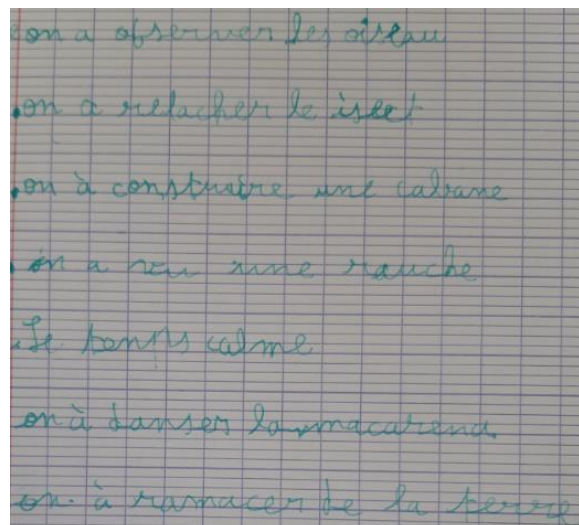 on a observer les oiseau
on a relacher le isect
on à construire une cabane
on a vu une rauche
Le temps calme
on à danser la macarena
on à ramacer de la terre